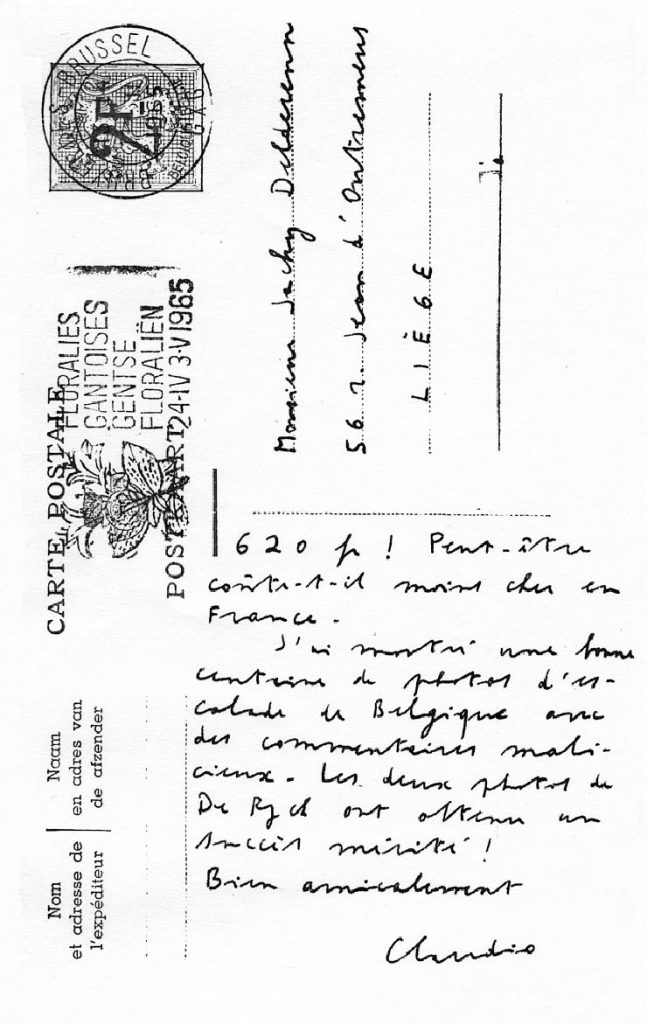 BRUSSEL
2F
1965
FLORALIES
GANTOISES
GENTSE
FLORALIËN
24-IV 3-V 1965
CARTE POSTALE
POSTKAART
Monsieur Jacky Delderenn
56 r. Jean d'Outremeus
LIÈGE
Nom
et adresse de
l'expéditeur
Naam
en adres van
de afzender
620 fr! Peut-être
coûte-t-il moins cher en
France.
J'ai montré une bonne
centaine de photos d'es-
calade de Belgique avec
des commentaires mali-
cieux. Les deux photos de
De Rych ont obtenu un
succès mérité!
Bien amicalement
Claudio